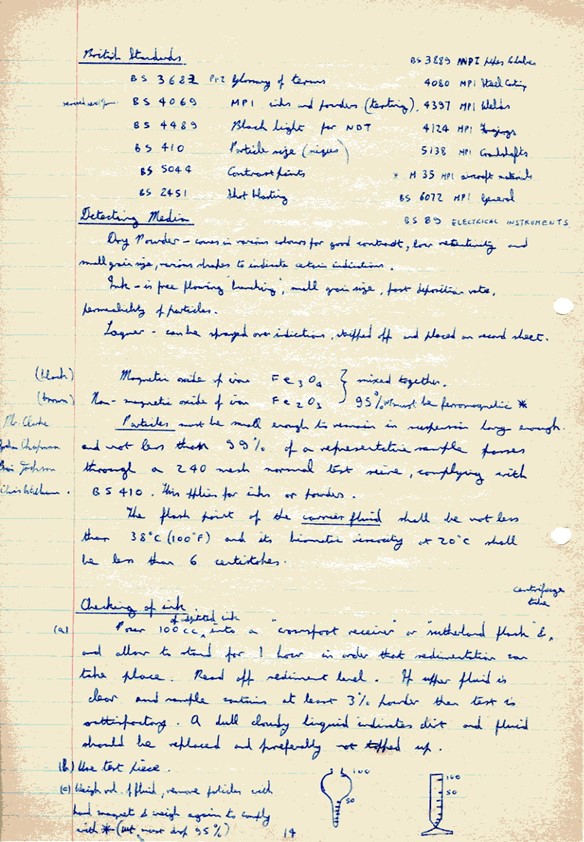 British Standards
BS 3683 Pt 2 Glossary of terms
BS 4069 MPI inks and powders (testing).
BS 4489 Black light for NDT
BS 410 Particle size (sieves)
BS 5044 Contrast paints
BS 2451 Shot blasting
BS 3889 MPI Pipes & tubes
4080 MPI Steel Casting
4397 MPI Welds
4124 MPI Forgings
5138 MPI Crankshafts
* M 35 MPI aircraft materials
BS 6072 MPI General
BS 89 ELECTRICAL INSTRUMENTS
Detecting Media
Dry Powder - comes in various colours for good contrast, low retentivity and
small grain size, various shapes to indicate certain indications.
Ink - is free flowing, small grain size, fast deposition rate,
permeability of particles.
Laquer - can be sprayed over indications, stripped off and placed on record sheet.
(black) Magnetic oxide of iron Fe3O4 } mixed together.
(brown) Non-magnetic oxide of iron Fe2O3 } 95% must be ferromagnetic *
Particles must be small enough to remain in suspension long enough.
and not less than 99% of a representative sample passes
through a 240 mesh normal test sieve, complying with
BS 410. This applies for inks or powders.
Mr. Clarke
John Chapman
Johnson
Chris
The flash point of the carrier fluid shall be not less
than 38°C (100°F) and its kinematic viscosity at 20°C shall
be less than 6 centistokes.
centrifuge
tube
Checking of ink
of agitated ink
(a) Pour 100cc, into a "crowsfoot receiver" or "sutherland flask" &,
and allow to stand for 1 hour in order that sedimentation can
take place. Read off sediment level. If upper fluid is
clear and sample contains at least 3% powder then test is
satisfactory. A dull cloudy liquid indicates dirt and fluid
should be replaced and preferably not topped up.
(b) Use test piece.
(c) Weigh vol. of fluid, remove particles with
hand magnet & weigh again to comply
with * (wt must drop 95%)
100
50
100
50
14